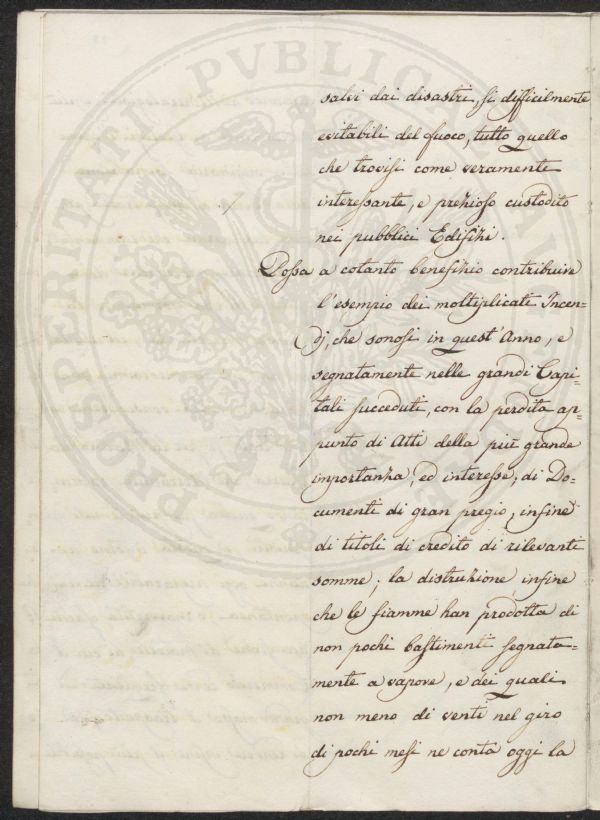 salvi dai disastri, si difficilmente
evitabili del fuoco, tutto quello
che trovisi come veramente
interessante, e prezioso custodito
nei pubblici Edifizi.
Possa a cotanto benefizio contribuire
l'esempio dei moltiplicati Incen=
dj, che sonosi in quest'Anno, e
segnatamente nelle grandi Capi=
tali succeduti, con la perdita ap=
punto di Atti della più grande
importanza, ed interesse, di Do=
cumenti di gran pregio, infine
di titoli di credito di rilevanti
somme; la distruzione infine
che le fiamme han prodotta di
non pochi bastimenti segnata=
mente a vapore, e dei quali
non meno di venti nel giro
di pochi mesi ne conta oggi la
PROSPERITATI PUBLICAE